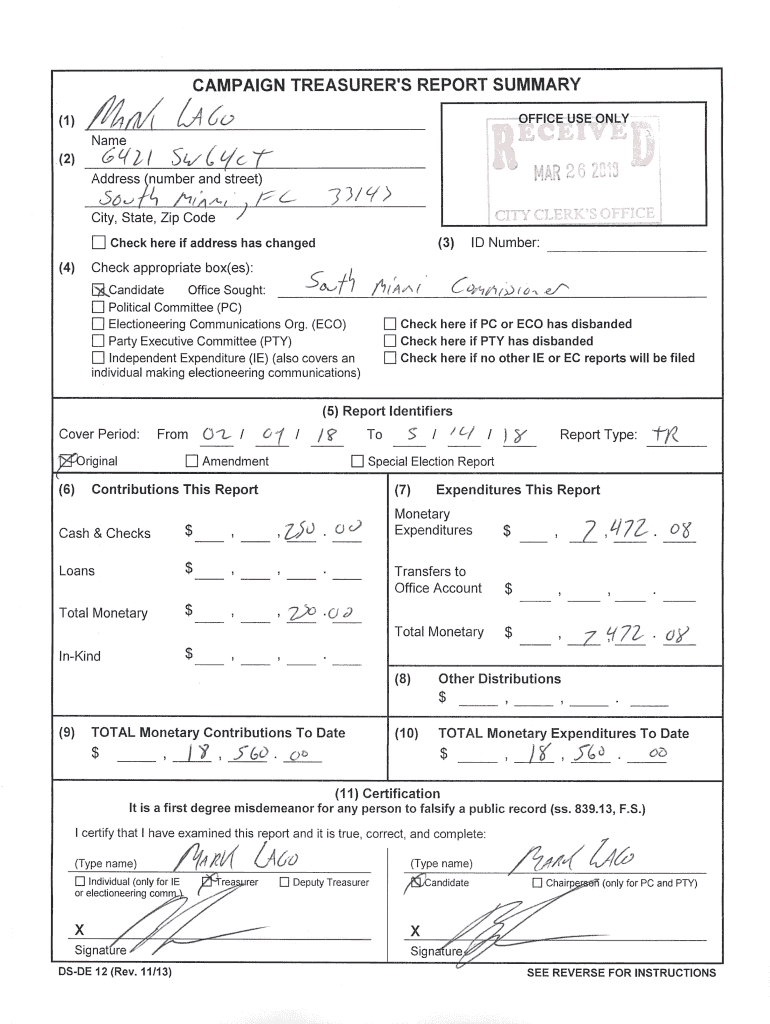 CAMPAIGN TREASURER'S REPORT SUMMARY
(1) MARK LAGO
Name
OFFICE USE ONLY
RECEIVED
MAR 26 2019
CITY CLERK'S OFFICE
(2) 6421 SW 64 CT
Address (number and street)
South Miami, FL 33143
City, State, Zip Code
Check here if address has changed
(3) ID Number:
(4) Check appropriate box(es):
Candidate Office Sought: South Miami Commissioner
Political Committee (PC)
Electioneering Communications Org. (ECO) Check here if PC or ECO has disbanded
Party Executive Committee (PTY) Check here if PTY has disbanded
Independent Expenditure (IE) (also covers an Check here if no other IE or EC reports will be filed
individual making electioneering communications)
(5) Report Identifiers
Cover Period: From 02 / 01 / 18 To 5 / 14 / 18 Report Type: TR
Original Amendment Special Election Report
(6) Contributions This Report
Cash & Checks $ , , 250 . 00
Loans $ , , .
Total Monetary $ , , 250 . 00
In-Kind $ , , .
(7) Expenditures This Report
Monetary
Expenditures $ , 7 , 472 . 08
Transfers to
Office Account $ , , .
Total Monetary $ , 7 472 . 08
(8) Other Distributions
$ , , .
(9) TOTAL Monetary Contributions To Date
$ , 18 , 560 . 00
(10) TOTAL Monetary Expenditures To Date
$ , 18 , 560 . 00
(11) Certification
It is a first degree misdemeanor for any person to falsify a public record (ss. 839.13, F.S.)
I certify that I have examined this report and it is true, correct, and complete:
(Type name) MARK LAGO
Individual (only for IE Treasurer Deputy Treasurer
or electioneering comm.)
X
Signature
(Type name) MARK LAGO
Candidate Chairperson (only for PC and PTY)
X
Signature
DS-DE 12 (Rev. 11/13) SEE REVERSE FOR INSTRUCTIONS